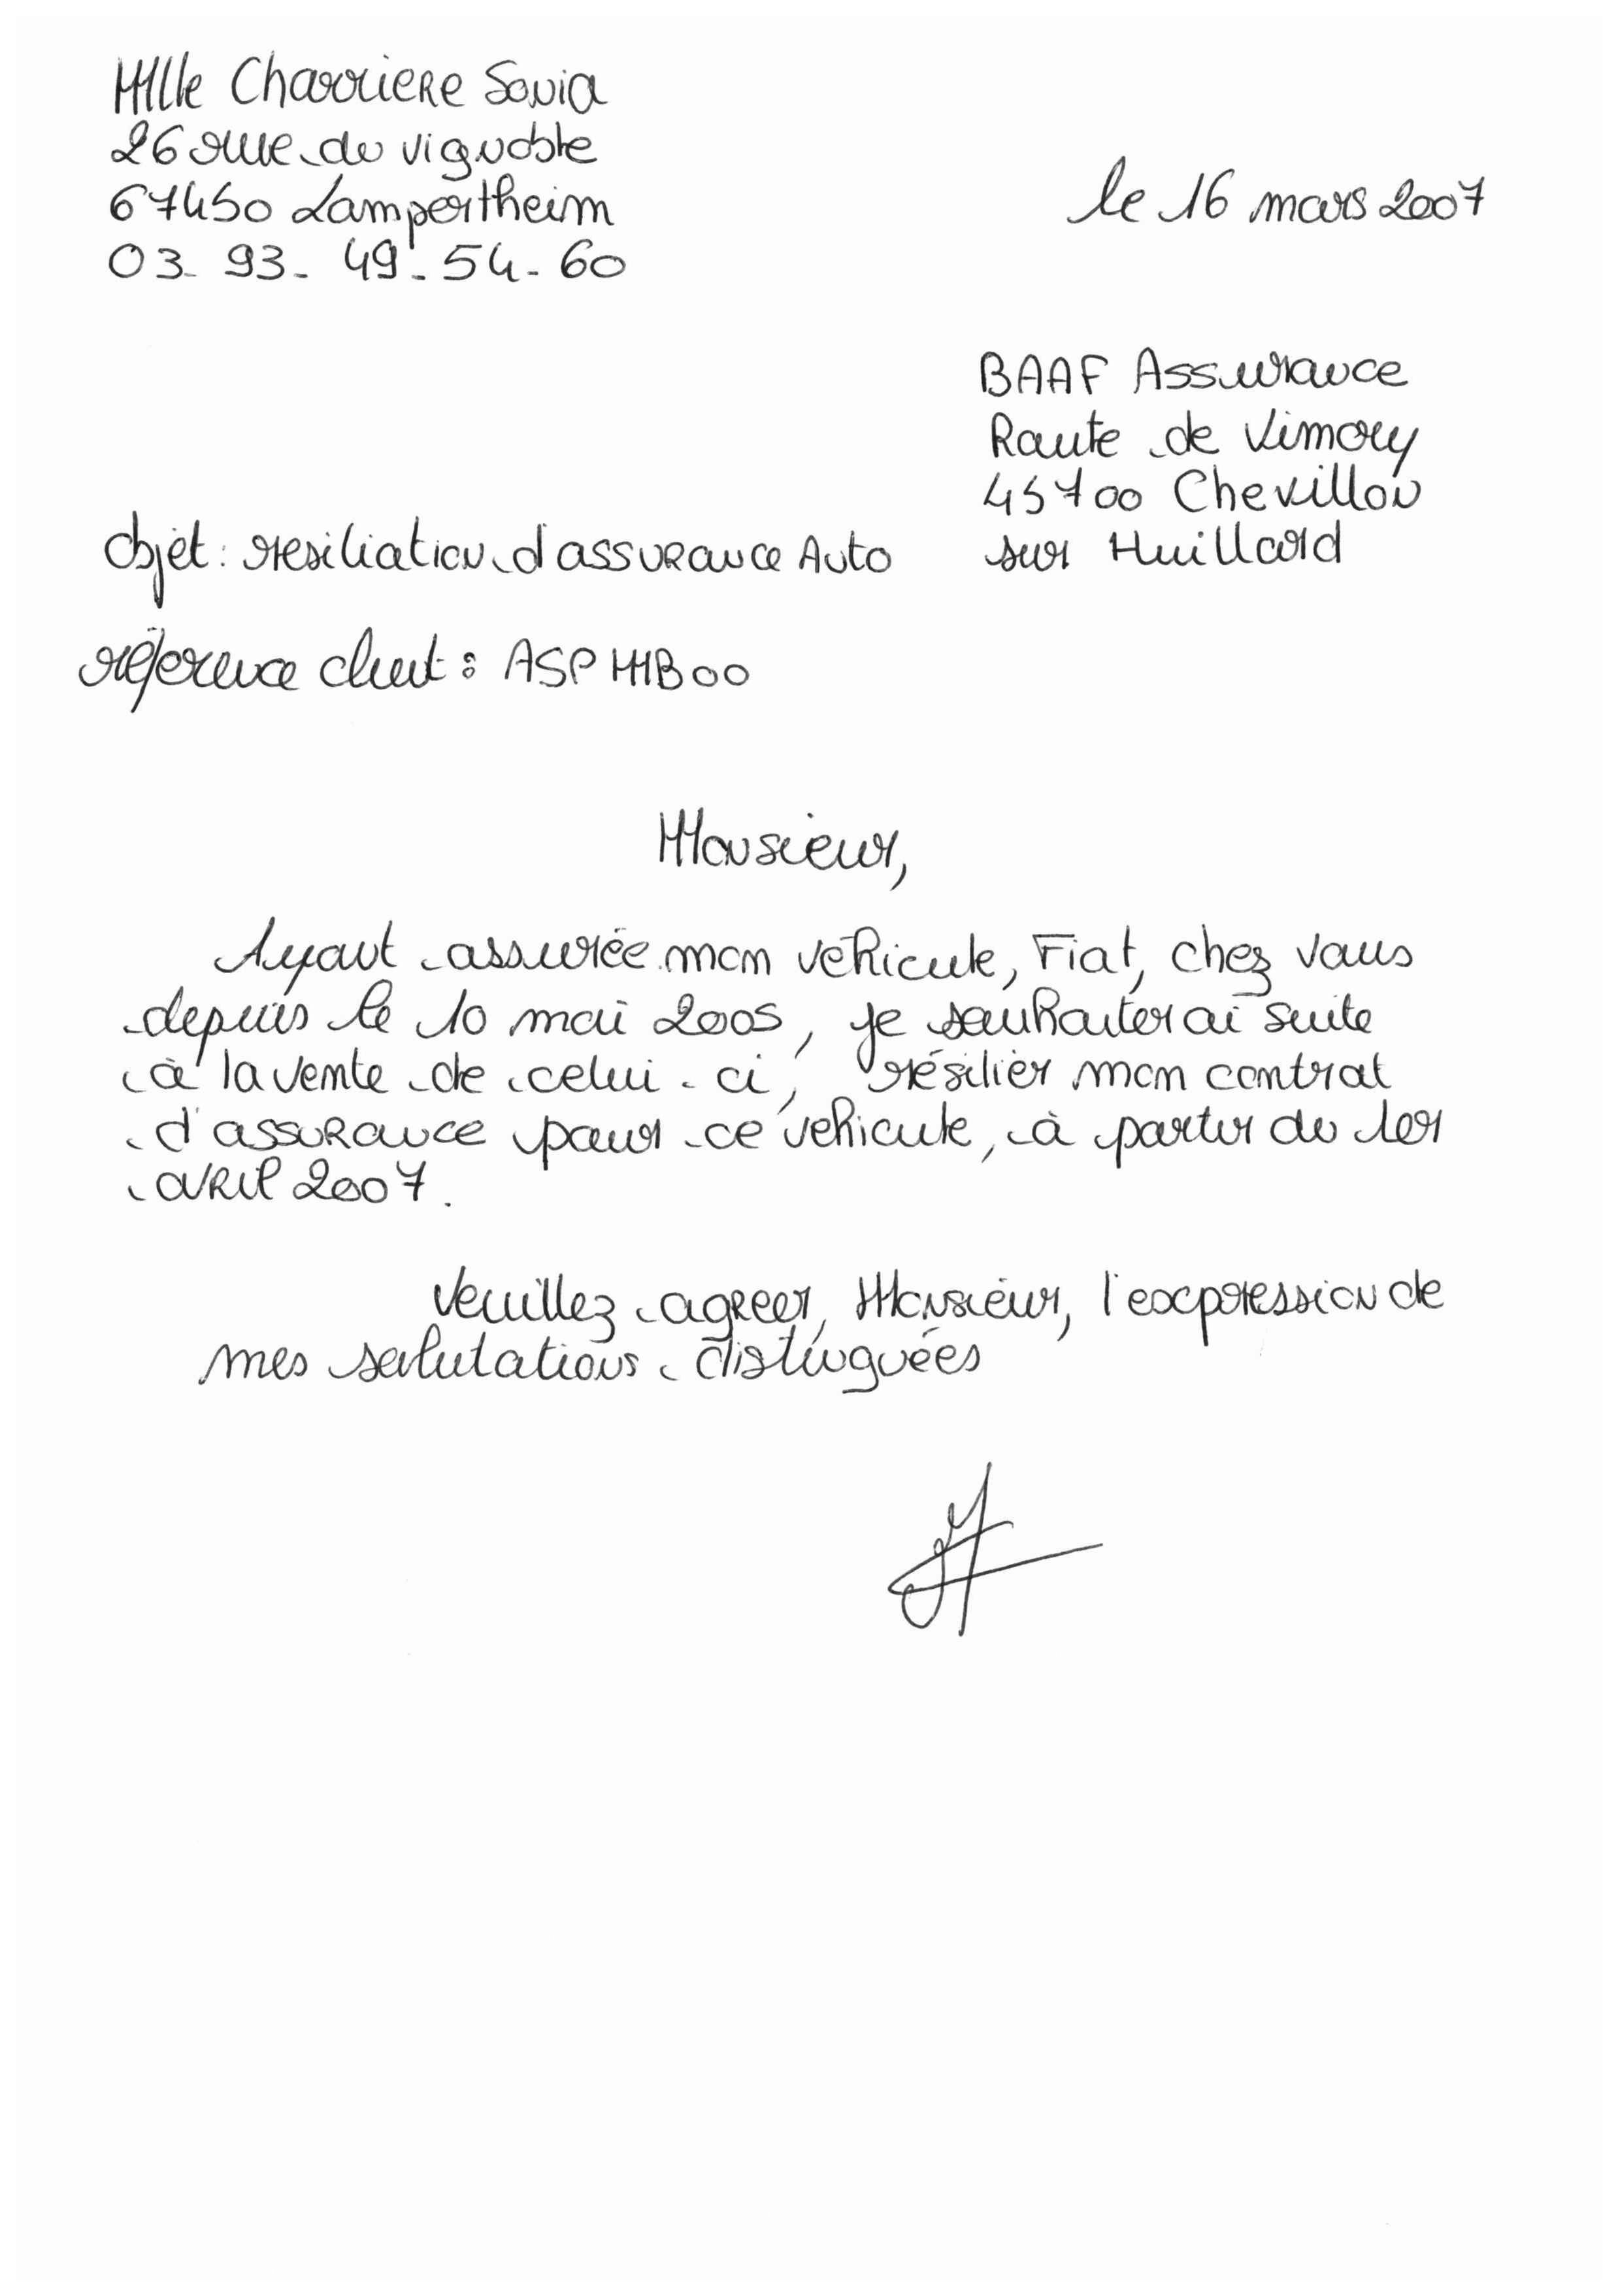 Mlle Charriere Sonia
26 rue du vignoble
67450 Lampertheim
03-93-49-54-60
le 16 mars 2007
BAAF Assurance
Route de Vimory
45700 Chevillon
sur Huillard
Objet : resiliation d'assurance Auto
référence client : ASPMB00
Monsieur,
Ayant assurée mon véhicule, Fiat, chez vous
depuis le 10 mai 2005, je souhaiterai suite
à la vente de celui-ci, résilier mon contrat
d'assurance pour ce véhicule, à partir du 1er
avril 2007.
Veuillez agreer, Monsieur, l'expression de
mes salutations distinguées